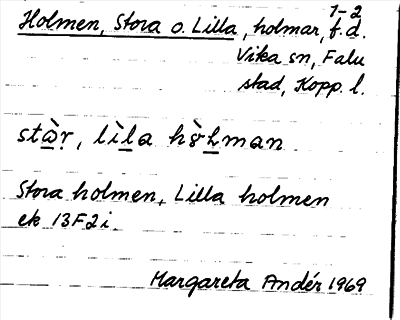 1-2
Holmen, Stora o. Lilla, holmar, f.d.
Vika sn, Falu
stad, Kopp. l.
Stora holmen, Lilla holmen
ek 13F2i.
Margareta Andér 1969